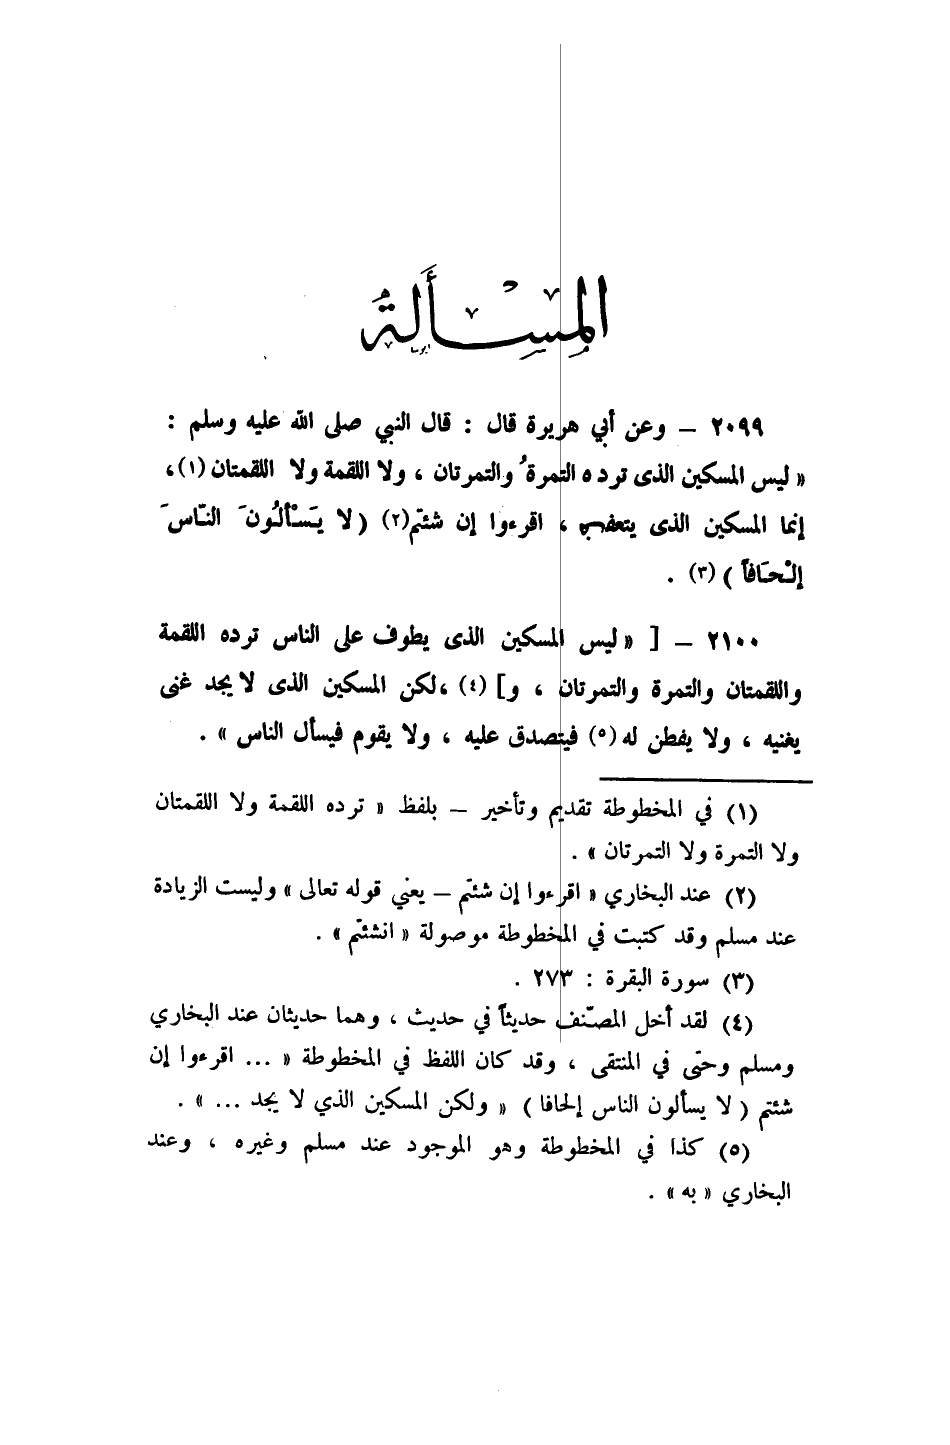 المَسْأَلَةُ
٢٠٩٩ – وعن أبي هريرة قال : قال النبي صلى الله عليه وسلم :
« ليس المسكين الذى ترده التمرةُ والتمرتان ، ولا اللقمة ولا اللقمتان (١) ،
إنما المسكين الذى يتعفف ، اقرءوا إن شئتم(٢) ( لا يَسْأَلُونَ النّاسَ
إلْحَافاً ) (٣) .
٢١٠٠ – [ « ليس المسكين الذى يطوف على الناس ترده اللقمة
واللقمتان والتمرة والتمرتان ، و] (٤) ،لكن المسكين الذى لا يجد غنى
يغنيه ، ولا يفطن له (٥) فيتصدق عليه ، ولا يقوم فيسأل الناس » .
(١) في المخطوطة تقديم وتأخير – بلفظ « ترده اللقمة ولا اللقمتان
ولا التمرة ولا التمرتان » .
(٢) عند البخاري « اقرءوا إن شئتم – يعني قوله تعالى » وليست الزيادة
عند مسلم وقد كتبت في المخطوطة موصولة « انشئتم » .
(٣) سورة البقرة : ٢٧٣ .
(٤) لقد أخل المصنّف حديثاً في حديث ، وهما حديثان عند البخاري
ومسلم وحتى في المنتقى ، وقد كان اللفظ في المخطوطة « ... اقرءوا إن
شئتم ( لا يسألون الناس إلحافا ) « ولكن المسكين الذي لا يجد ... » .
(٥) كذا في المخطوطة وهو الموجود عند مسلم وغيره ، وعند
البخاري « به » .